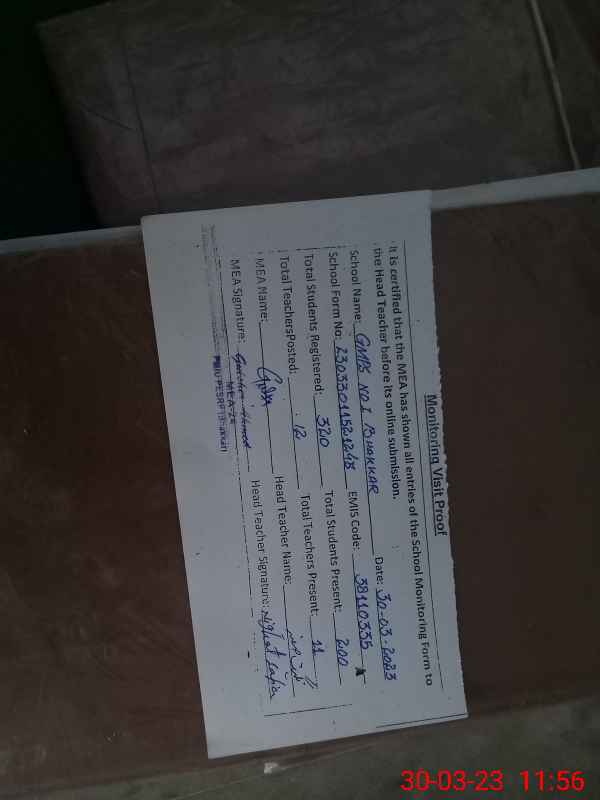 Monitoring Visit Proof
It is certified that the MEA has shown all entries of the School Monitoring Form to
the Head Teacher before its online submission. Date: 30-03-2023
School Name: GMPS NO.1 BHAKKAR EMIS Code: 38110335
School Form No: 2303301152124B Total Students Present: 200
Total Students Registered: 320 Total Teachers Present: 11
Total TeachersPosted: 12 Head Teacher Name:
MEA Name: Head Teacher Signature: Nighat
MEA Signature:
MEA-24
30-03-23 11:56